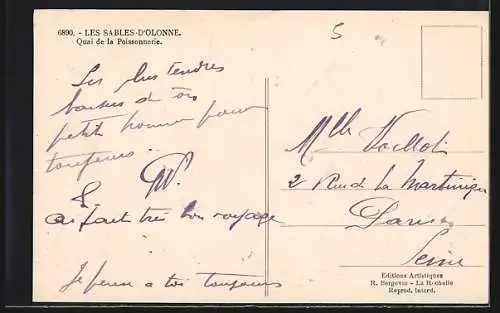 6890. - LES SABLES-D'OLONNE.
Quai de la Poissonnerie.
5
Les plus tendres
baisers de ton
petit homme pour
toujours.
ai fait très bon voyage
Je pense a toi toujours
Mlle
2 Rue de la Martinique
Paris
Seine
Editions Artistiques
R. Bergevin - La Rochelle
Reprod. interd.